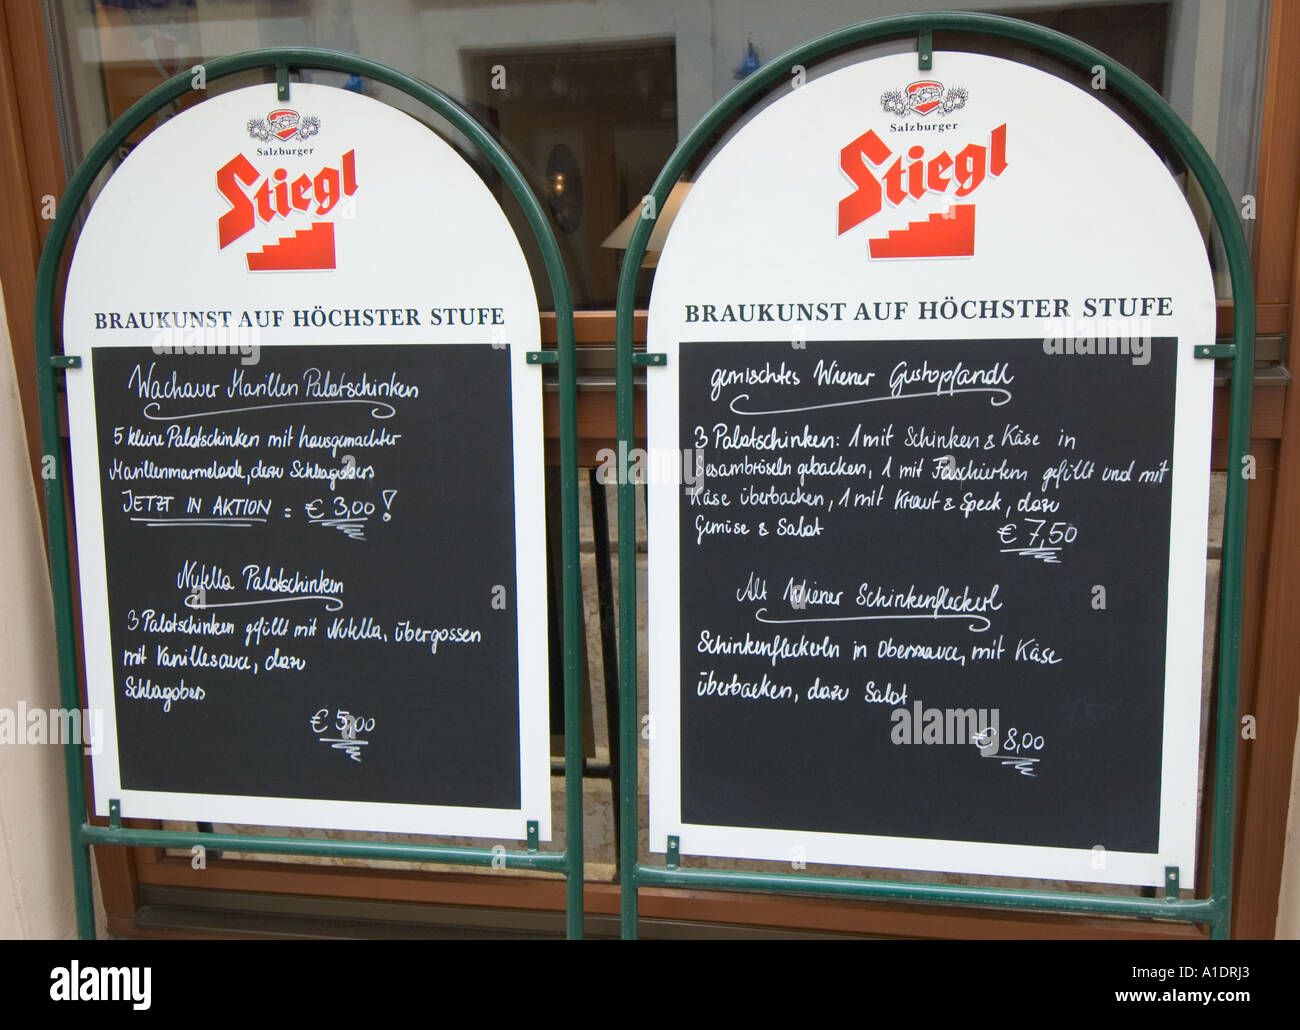 Salzburger
Stiegl
BRAUKUNST AUF HÖCHSTER STUFE
Wachauer Marillen Palatschinken
5 kleine Palatschinken mit hausgemachter
Marillenmarmelade, dazu Schlagobers
JETZT IN AKTION = € 3,00!
Nutella Palatschinken
3 Palatschinken gefüllt mit Nutella, übergossen
mit Vanillesauce, dazu
Schlagobers
€ 5,00
Salzburger
Stiegl
BRAUKUNST AUF HÖCHSTER STUFE
gemischtes Wiener Gustopfandl
3 Palatschinken: 1 mit Schinken & Käse in
Sesambröseln gebacken, 1 mit Faschiertem gefüllt und mit
Käse überbacken, 1 mit Kraut & Speck, dazu
Gemüse & Salat
€ 7,50
Alt Wiener Schinkenfleckerl
Schinkenfleckerln in Oberssauce, mit Käse
überbacken, dazu Salat
€ 8,00
alamy stock photo
alamy
A1DRJ3
www.alamy.com